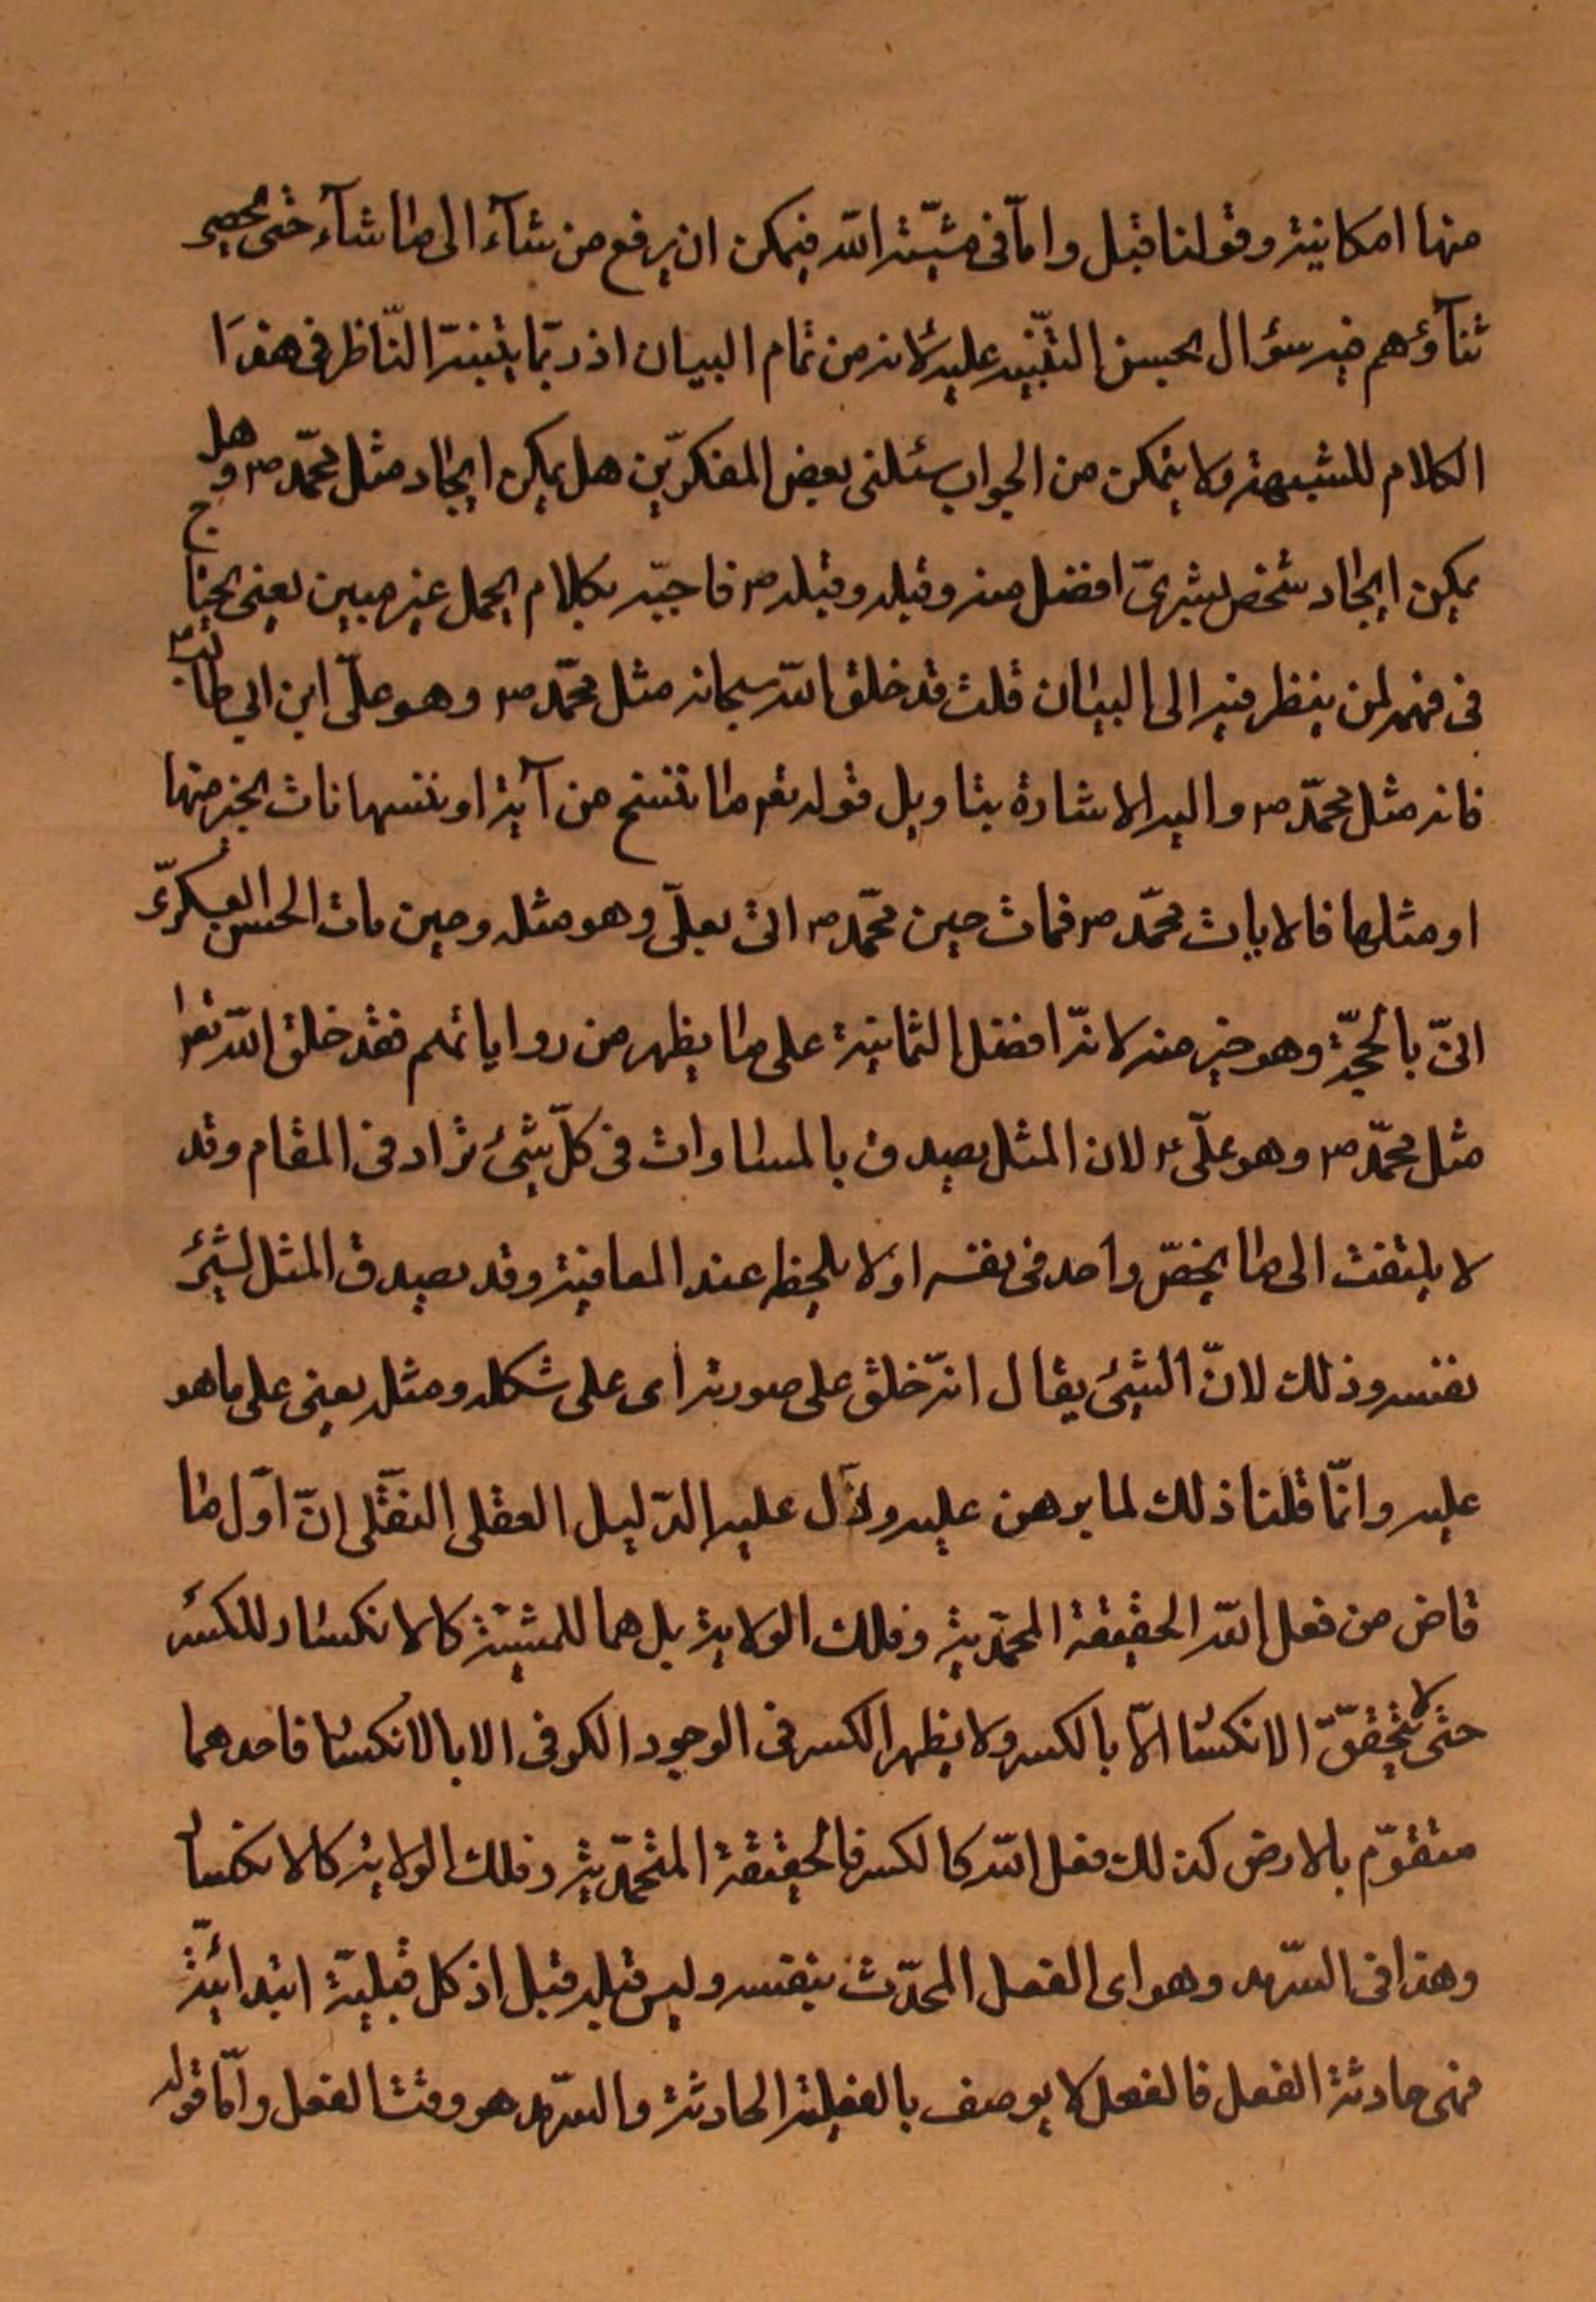 منها امكانية وقولنا قبل واما فى مشيّة الله فيمكن ان يرفع من شآء الى ما شآء حتى
ثنآؤهم فيه سؤال يحسن التنبيه عليه لانه من تمام البيان اذ ربّما يتبنه النّاظر فى هذا
الكلام للشبهة ولا يتمكن من الجواب سئلنى بعض المفكرين هل يمكن ايجاد مثل محمّد ص وهل
يمكن ايجاد شخص بشرىّ افضل منه وقبله وقبله ص فاجبته بكلام مجمل غير مبين يعنى يحتاج
فى فهمه لمن ينظر فيه الى البيان قلت قد خلق الله سبحانه مثل محمّد ص وهو علىّ ابن ابي طالب
فانه مثل محمّد ص واليه الاشارة بتاويل قوله تعم ما ننسخ من آية او ننسها نات بخير منها
او مثلها فالايات محمّد ص فمات حين محمّد ص اتى بعلىّ وهو مثله وحين مات الحسن العسكرىّ
اتىّ بالحجّة وهو خير منه لانّه افضل الثمانية على ما يظهر من رواياتهم فقد خلق الله تعم
مثل محمّد ص وهو علىّ ع لان المثل يصدق بالمساوات فى كلّ شئ تراد فى المقام وقد
لا يلتفت الى ما يخصّ واحد فى نفسه او لا يلحظ عند المعاينة وقد يصدق المثل لشئ
نفسه وذلك لانّ الشئ يقال انّه خلق على صورته اى على شكله ومثله يعنى على ما هو
عليه وانّما قلنا ذلك لما برهن عليه ودلّ عليه الدّليل العقلى النقلى انّ اوّل ما
فاض من فعل الله الحقيقة المحمّدية وفلك الولاية بل هما للمشيّة كالانكسار للكسر
حتى لا يتحقّق الانكسار الّا بالكسر ولا يظهر الكسر فى الوجود الكونى الا بالانكسار فاحدهما
متقوّم بالارض كذلك فعل الله كالكسر فالحقيقة المتحمّدية وفلك الولاية كالانكسار
وهذا فى السّرمد وهو اى الفعل المحدّث بنفسه وليس قبله قبل اذ كل قبليّة ابتدائيّة
فهى حادثة الفعل فالفعل لا يوصف بالفعلية الحادثة والسّرمد هو وقت الفعل وامّا قوله